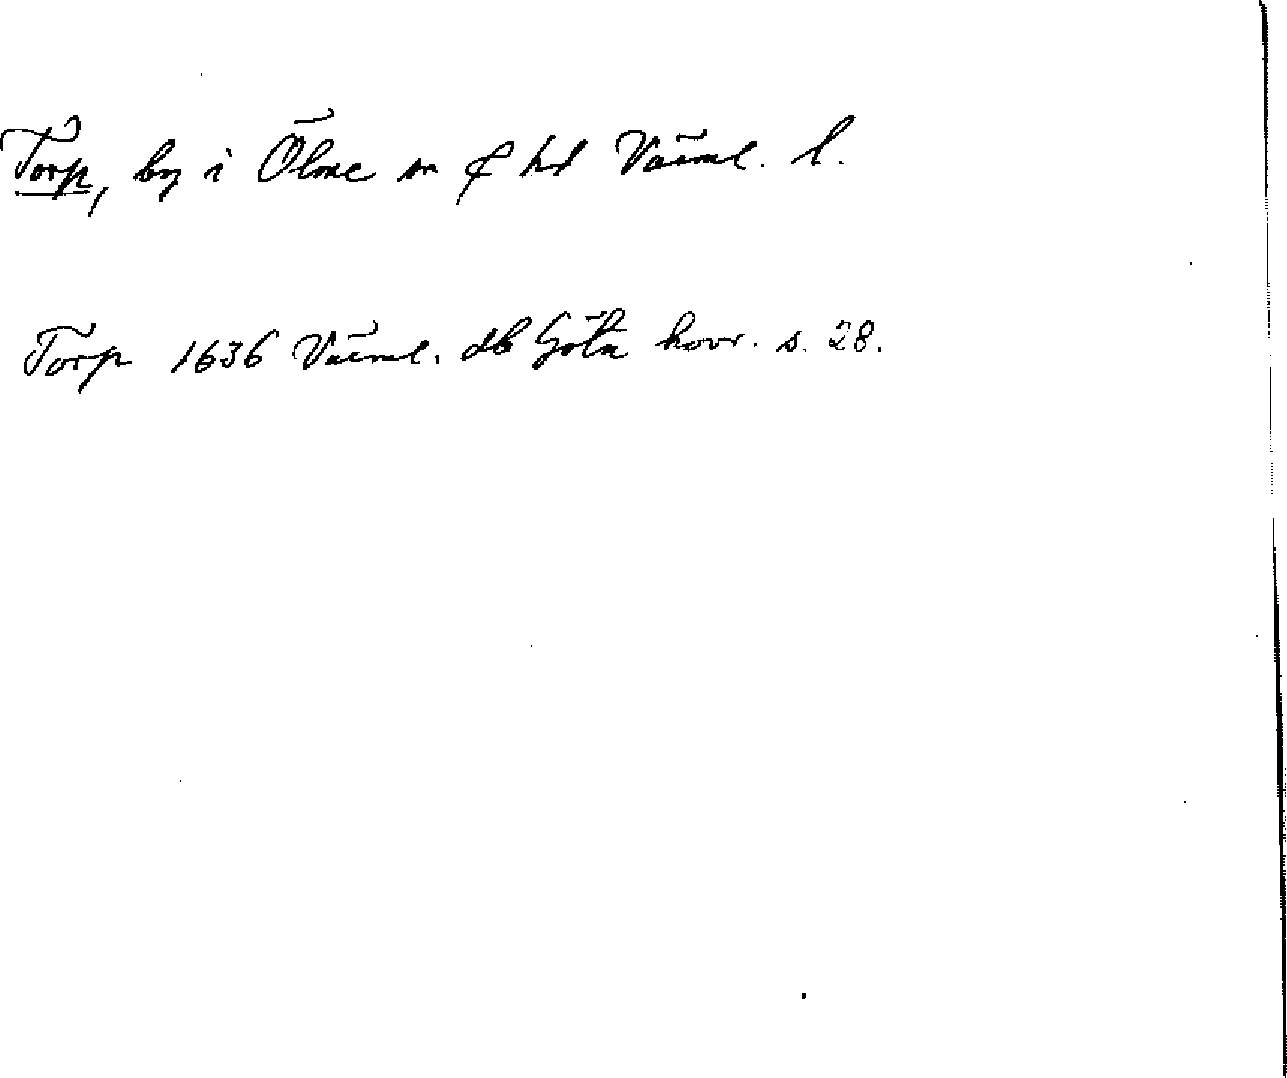 Torp, by i Ölme sn & hd Värml. l.
Torp 1636 Värml. db Göta hovr. s. 28.